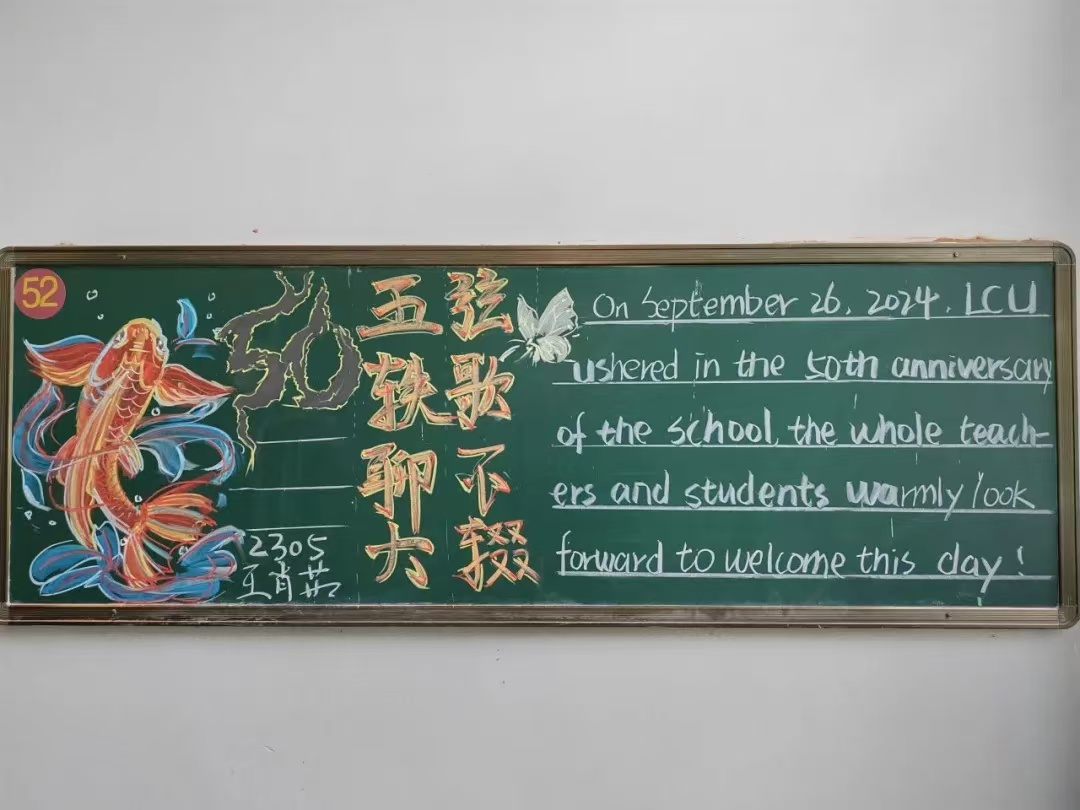 52
50
五轶聊大
弦歌不辍
2305
王肖
On September 26, 2024, LCU
ushered in the 50th anniversary
of the school, the whole teach-
ers and students warmly look
forward to welcome this day!